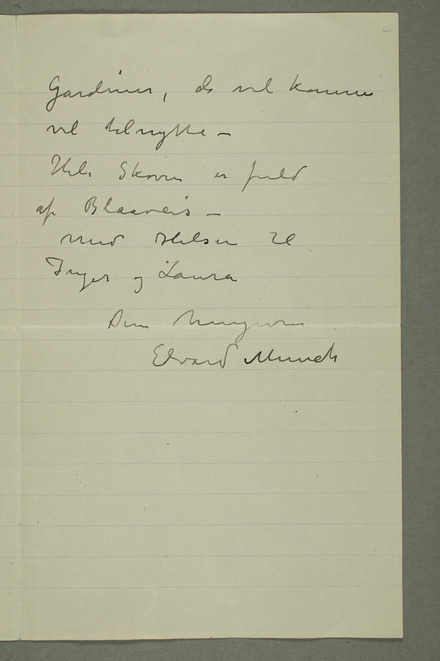 Gardiner, de vil komme
vel tilnytte –
Hele Skoven er fuld
af Blaaveis –
Med Hilsen til
Inger og Laura
Din hengivne
Edvard Munch